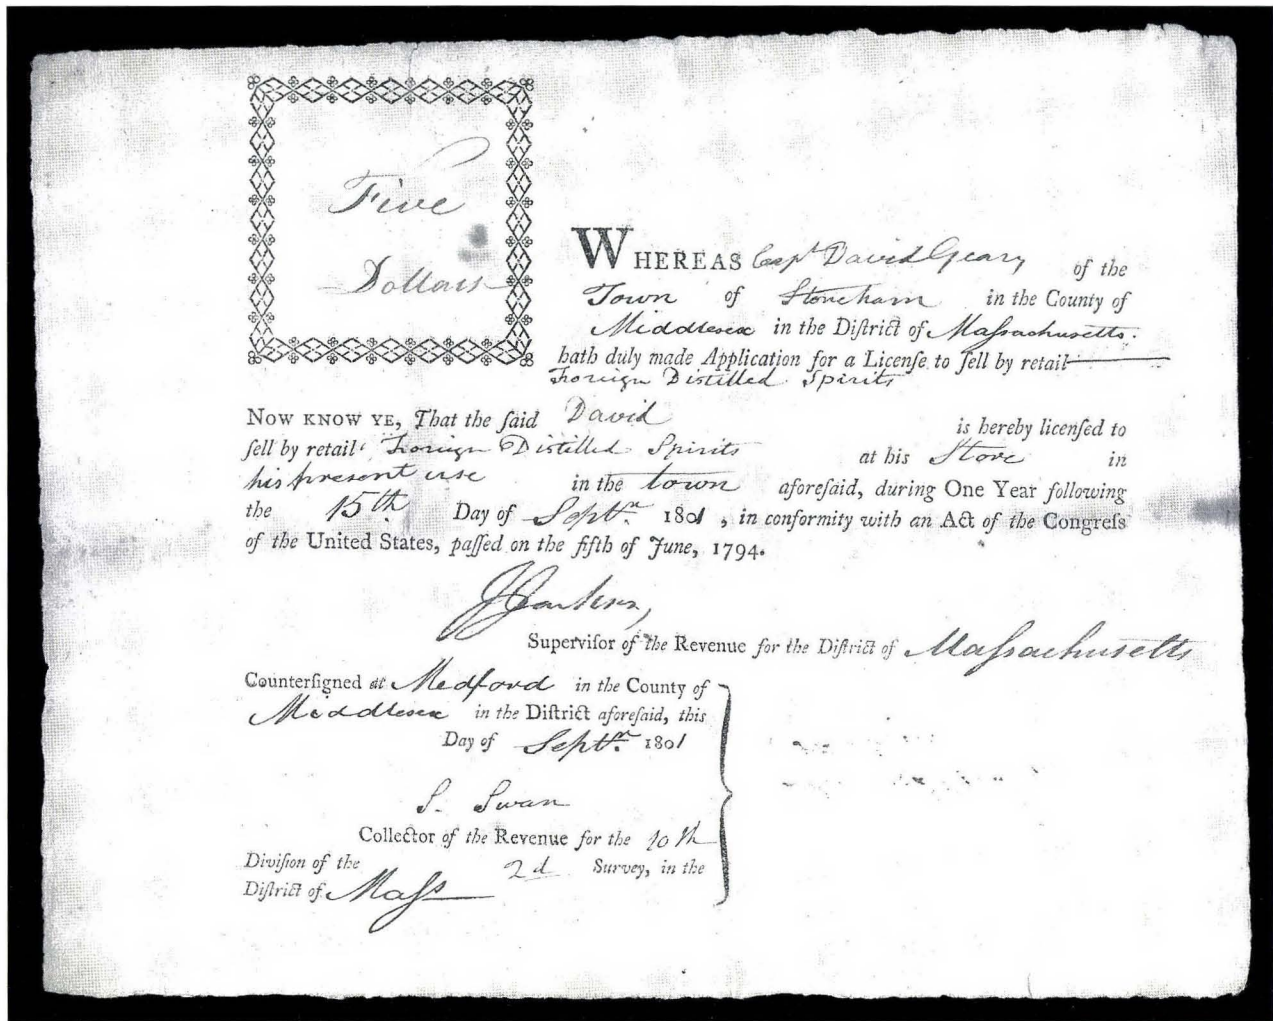 Five
Dollars
WHEREAS Capt David Geary of the
Town of Stoneham in the County of
Middlesex in the Diſtrict of Maſsachusetts.
hath duly made Application for a Licenſe to ſell by retail
Foreign Distilled Spirits
NOW KNOW YE, That the ſaid David is hereby licenſed to
ſell by retail Foreign Distilled Spirits at his Store in
his present use in the town aforeſaid, during One Year following
the 15th Day of Septr. 1801, in conformity with an Act of the Congreſs
of the United States, paſſed on the fifth of June, 1794.
Superviſor of the Revenue for the Diſtrict of Maſsachusetts
Counterſigned at Medford in the County of
Middlesex in the Diſtrict aforeſaid, this
Day of Septr. 1801
S. Swan
Collector of the Revenue for the 10th
Diviſion of the 2d Survey, in the
Diſtrict of Maſs